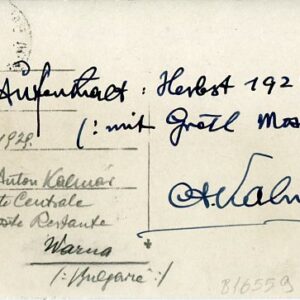 Aufenthalt: Herbst 192
/: mit Gretl Mos
1929.
Anton Kalmár
te Centrale
ste Restante
Warna
/: Bulgarie :/
A. Kalm
816559